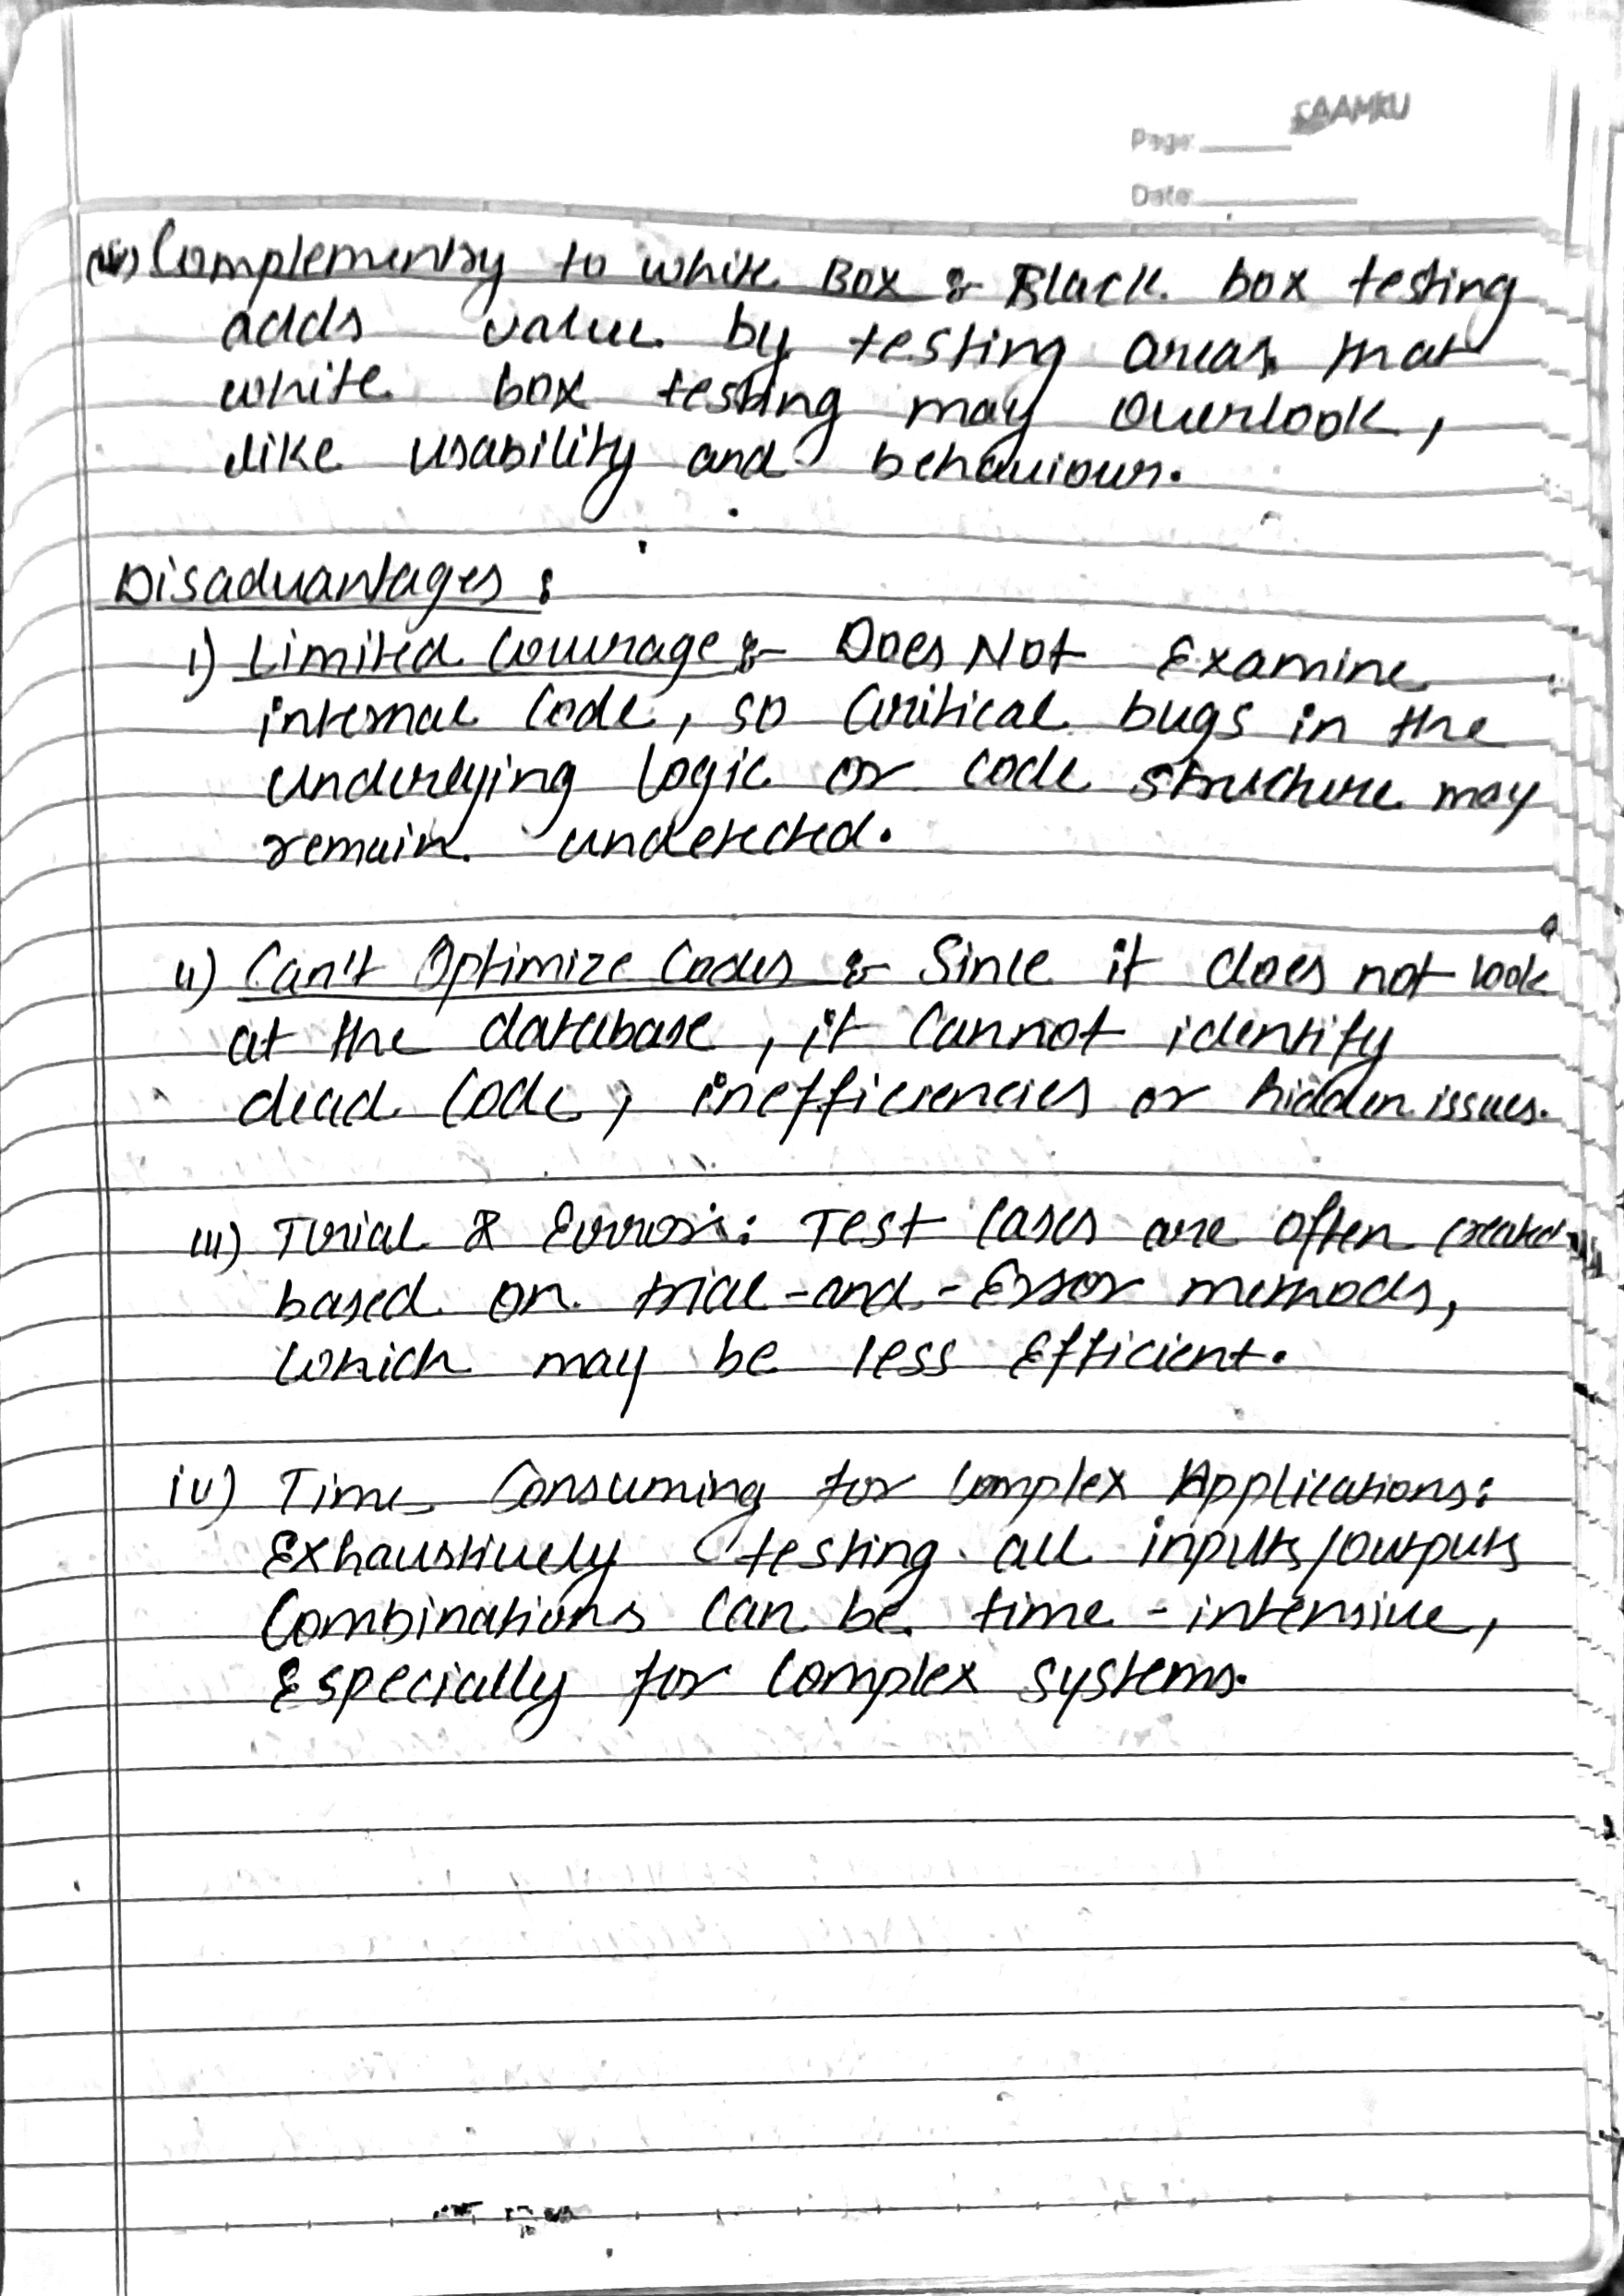 SAAMKU
Page:
Date:
(iv) Complementry to white Box :- Black box testing
adds value by testing areas that
white box testing may overlook,
like usability and behaviour.
Disadvantages :
i) Limited Coverage :- Does Not Examine
internal Code, so Critical bugs in the
underlying logic or code structure may
remain undetected.
ii) Can't Optimize Codes :- Since it does not look
at the database, it cannot identify
dead code, inefficiencies or hidden issues.
iii) Trial & Error: Test cases are often created
based on trial-and-Error methods,
which may be less Efficient.
iv) Time Consuming for Complex Applications:
Exhaustively testing all inputs/outputs
Combinations can be time-intensive,
Especially for Complex systems.